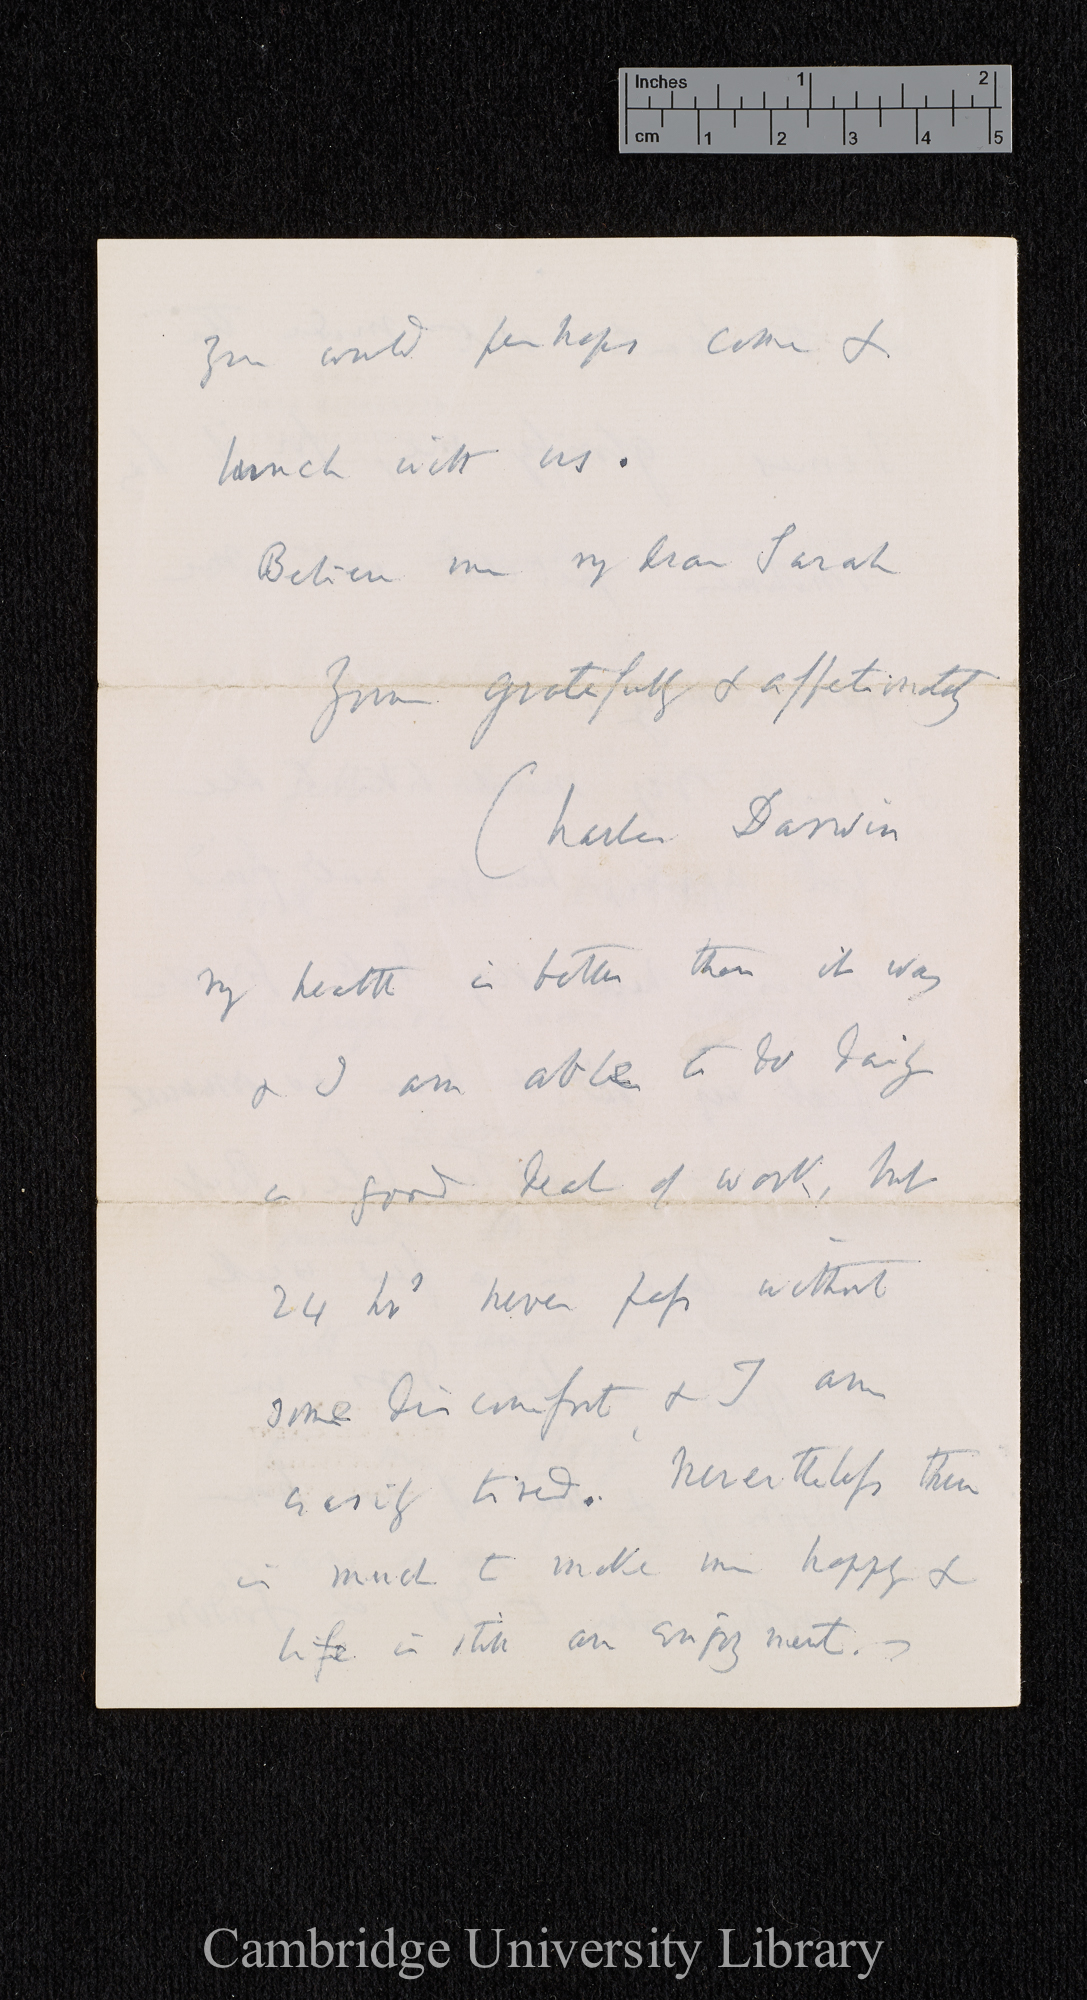 Inches 1 2
cm 1 2 3 4 5
you would perhaps come &
lunch with us.
Believe me my dear Sarah
Yours gratefully & affectionately
Charles Darwin
My health is better than it was
& I am able to do daily
a good deal of work, but
24 hrs never pass without
some discomfort, & I am
easily tired. Nevertheless there
is much to make me happy &
life is still an enjoyment.—
Cambridge University Library